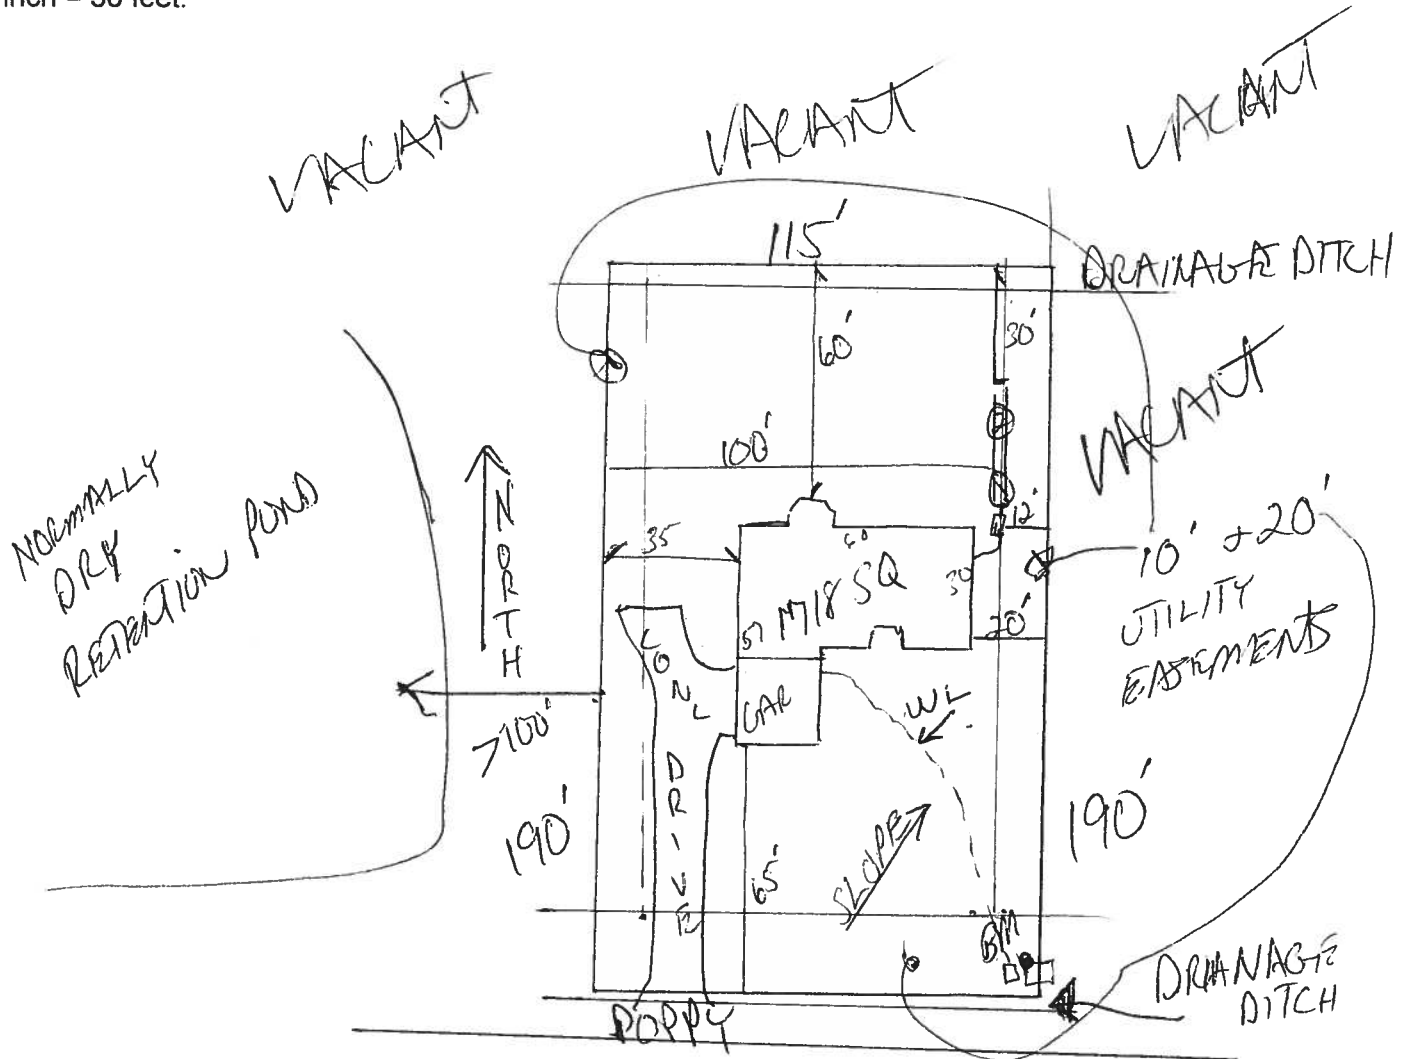 inch = 50 feet.
VACANT
VACANT
VACANT
115'
DRAINAGE DITCH
60'
30'
VACANT
100'
NORMALLY
DRY
RETENTION POND
NORTH
35
60
12'
10' & 20'
UTILITY
EASEMENTS
1718 SQ
30
20'
57
CONC
DRIVE
GAR
WL
>100'
190'
190'
SLOPE
65'
BM
DRANAGE
DITCH
POPPY